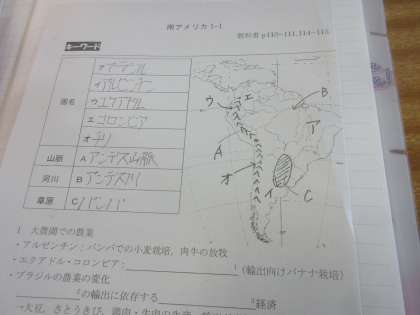 南アメリカ 1-1
教科書 p110~111,114~115
キーワード
国名
ア ブラジル
イ アルゼンチン
ウ エクアドル
エ コロンビア
オ チリ
山脈 A アンデス山脈
河川 B アンデス川
草原 C パンパ
ウ エ B ア
A オ イ C
1 大農園での農業
・アルゼンチン：パンパでの小麦栽培，肉牛の放牧
・エクアドル・コロンビア： 1（輸出向けバナナ栽培）
・ブラジルの農業の変化
2の輸出に依存する 3経済
→大豆，さとうきび，鶏肉・牛肉の生産